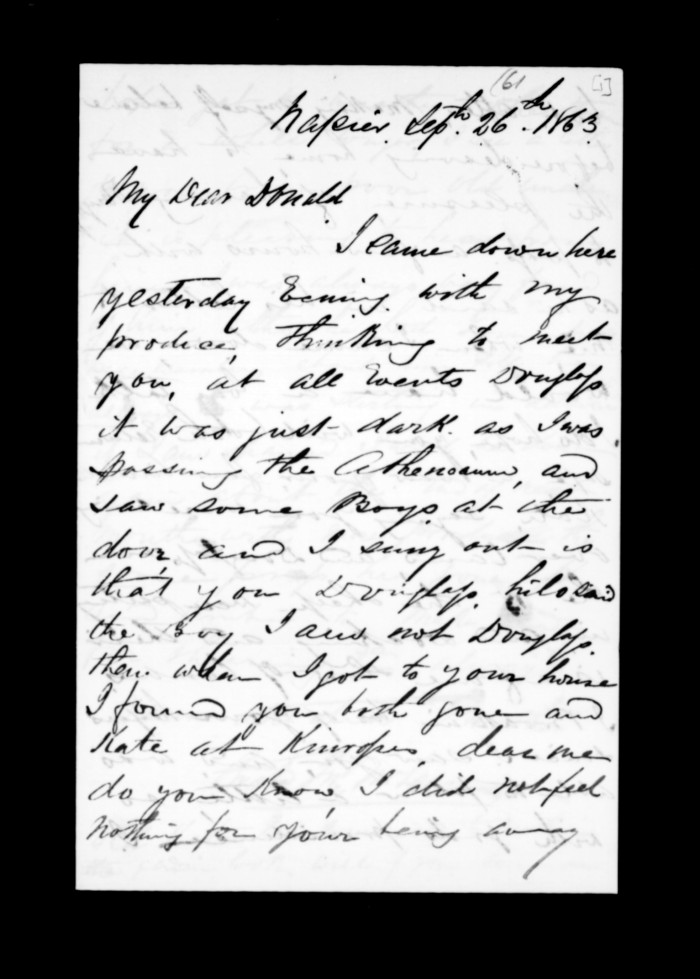 (61 [1]
Napier Septh. 26th. 1863
My Dear Donald
I came down here
yesterday Evening. with my
produce, thinking to meet
you, at all Events Douglass
it was just dark. as I was
passing the Atheneaum, and
saw some Boys at the
door, and I sung out is
that you Douglass. hilo said
the Boy I am not Douglass.
then when I got to your house
I found you both gone and
Kate at Kinross, dear me
do you know I did not feel
nothing for your being away